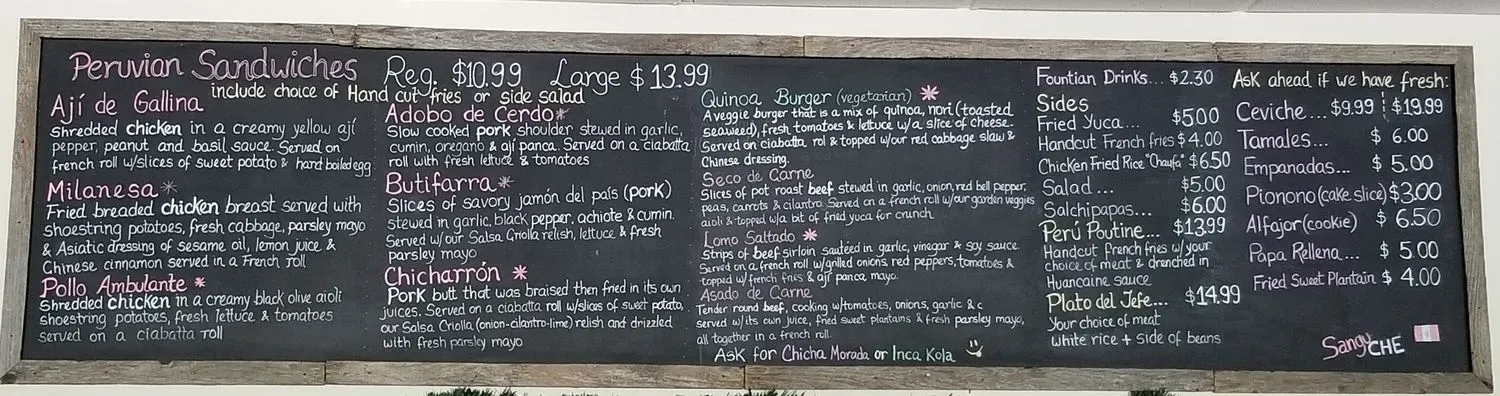 Peruvian Sandwiches Reg. $10.99 Large $13.99
include choice of Hand cut fries or side salad
Ají de Gallina
Shredded chicken in a creamy yellow ají
pepper, peanut and basil sauce. Served on
french roll w/slices of sweet potato & hard boiled egg
Milanesa*
Fried breaded chicken breast served with
shoestring potatoes, fresh cabbage, parsley mayo
& Asiatic dressing of sesame oil, lemon juice &
Chinese cinnamon served in a French roll
Pollo Ambulante *
Shredded chicken in a creamy black olive aioli
shoestring potatoes, fresh lettuce & tomatoes
served on a ciabatta roll
Adobo de Cerdo*
Slow cooked pork shoulder stewed in garlic,
cumin, oregano & ají panca. Served on a ciabatta
roll with fresh lettuce & tomatoes
Butifarra*
Slices of savory jamón del país (pork)
stewed in garlic, black pepper, achiote & cumin.
Served w/our Salsa Criolla relish, lettuce & fresh
parsley mayo
Chicharrón *
Pork butt that was braised then fried in its own
juices. Served on a ciabatta roll w/slices of sweet potato,
our Salsa Criolla (onion-cilantro-lime) relish and drizzled
with fresh parsley mayo
Quinoa Burger (vegetarian) *
A veggie burger that is a mix of quinoa, nori (toasted
seaweed), fresh tomatoes & lettuce w/a slice of cheese.
Served on ciabatta rol & topped w/our red cabbage slaw &
Chinese dressing.
Seco de Carne
Slices of pot roast beef stewed in garlic, onion, red bell pepper,
peas, carrots & cilantro. Served on a french roll w/our garden veggies
aioli & topped w/a bit of fried yuca for crunch
Lomo Saltado *
Strips of beef sirloin sautéed in garlic, vinegar & soy sauce.
Served on a french roll w/grilled onions, red peppers, tomatoes &
topped w/french fries & ají panca mayo.
Asado de Carne
Tender round beef, cooking w/tomatoes, onions, garlic & c
served w/its own juice, fried sweet plantains & fresh parsley mayo,
all together in a french roll
Ask for Chicha Morada or Inca Kola
Fountian Drinks... $2.30
Sides
Fried Yuca... $5.00
Handcut French fries $4.00
Chicken Fried Rice "Chaufa" $6.50
Salad ... $5.00
Salchipapas... $6.00
Perú Poutine... $13.99
Handcut french fries w/your
choice of meat & drenched in
Huancaine sauce
Plato del Jefe... $14.99
Your choice of meat
white rice + side of beans
Ask ahead if we have fresh:
Ceviche ... $9.99 | $19.99
Tamales... $ 6.00
Empanadas... $ 5.00
Pionono (cake slice) $3.00
Alfajor (cookie) $ 6.50
Papa Rellena... $ 5.00
Fried Sweet Plantain $ 4.00
SanguCHE